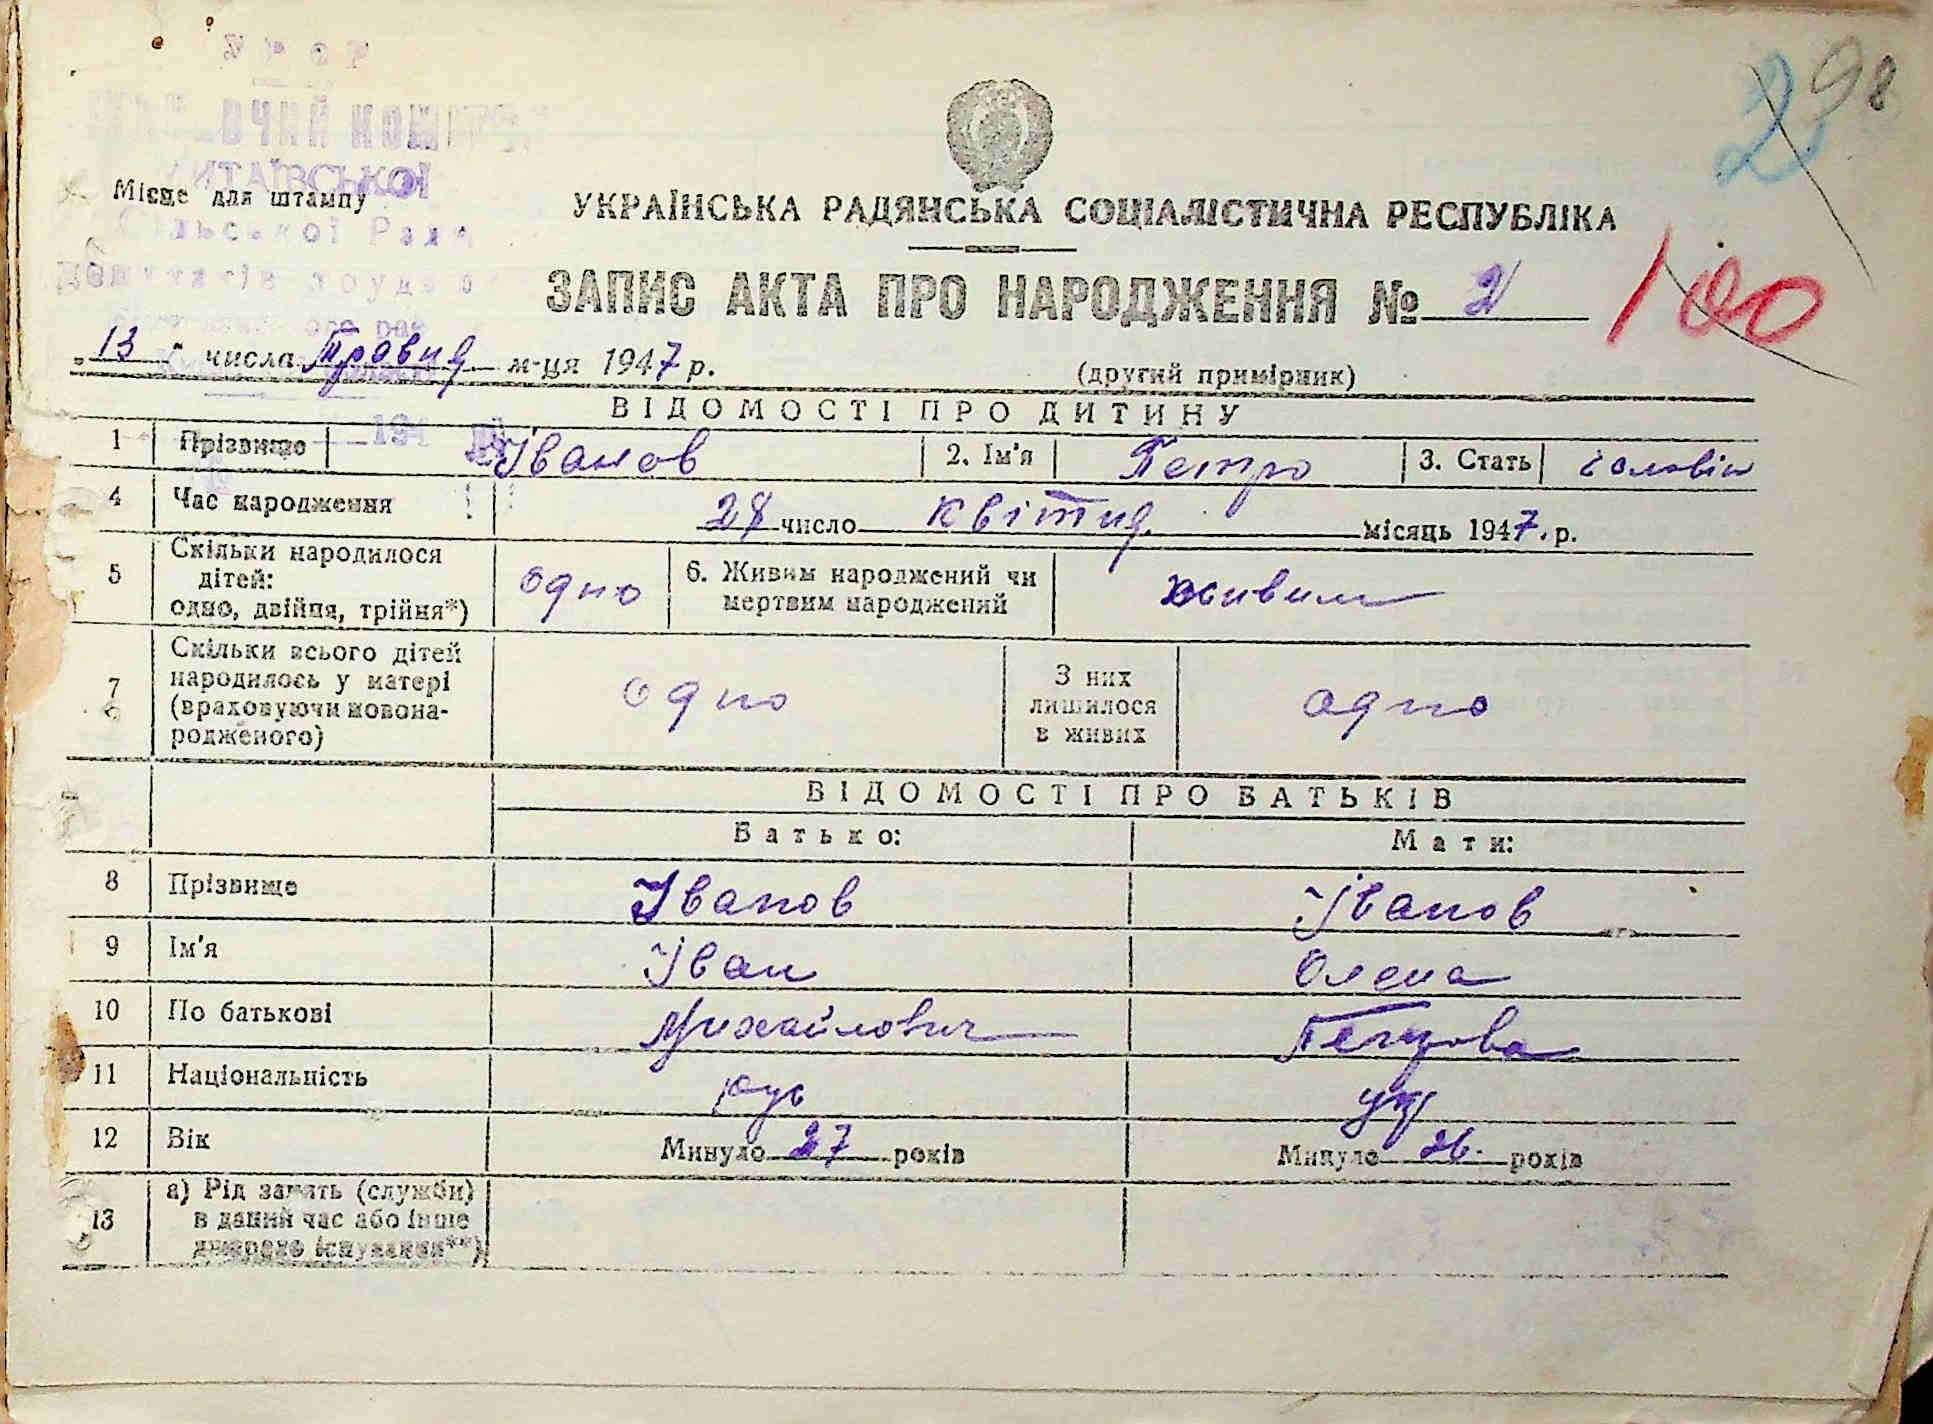 У Р С Р
КИТАЇВСЬКОЇ
Місце для штампу
Сільської Ради
Депутатів
298
УКРАЇНСЬКА РАДЯНСЬКА СОЦІАЛІСТИЧНА РЕСПУБЛІКА
ЗАПИС АКТА ПРО НАРОДЖЕННЯ № 2
100
„13" числа Травня м-ця 1947 р.
(другий примірник)
ВІДОМОСТІ ПРО ДИТИНУ
1 Прізвище Іванов 2. Ім'я Петро 3. Стать
4 Час народження 28 число квітня місяць 1947. р.
5 Скільки народилося дітей: одно, двійня, трійня*) одно 6. Живим народжений чи мертвим народжений живим
7 Скільки всього дітей народилось у матері (враховуючи новонародженого) одно З них лишилося в живих одно
ВІДОМОСТІ ПРО БАТЬКІВ
Батько: Мати:
8 Прізвище Іванов Іванов
9 Ім'я Іван Олена
10 По батькові Михайлович Петрова
11 Національність рус укр
12 Вік Минуло 27 років Минуло 26. років
13 а) Рід занять (служби) в даний час або інше джерело існування**)